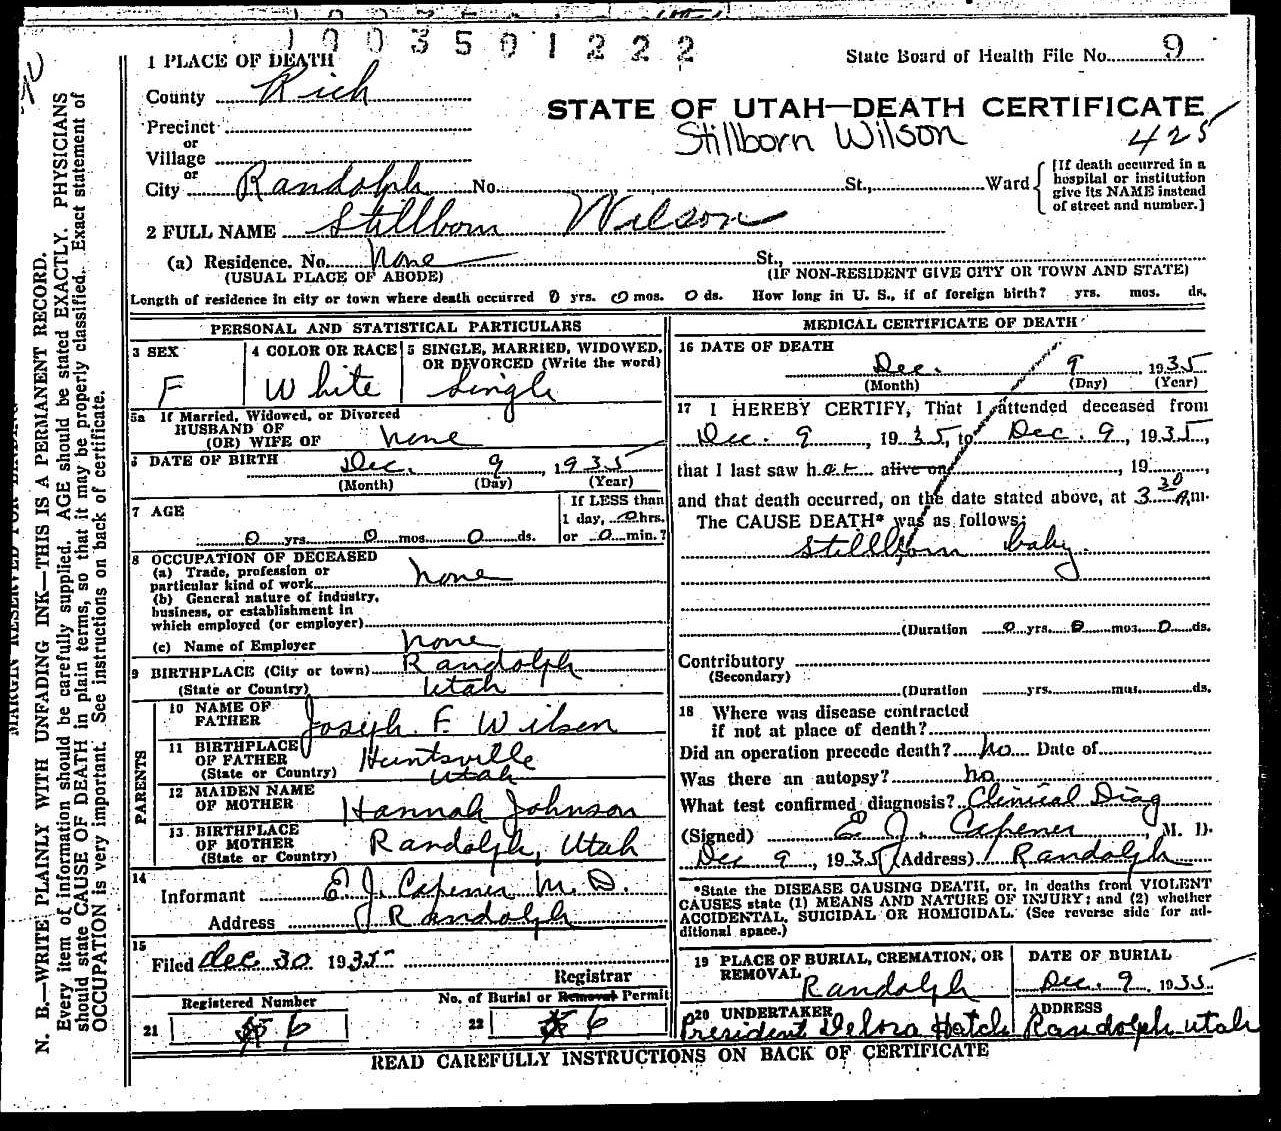 1003501222
1 PLACE OF DEATH
State Board of Health File No. 9
County Rich
STATE OF UTAH—DEATH CERTIFICATE
Precinct
Stillborn Wilson
425
or
Village
or
City Randolph No. St., Ward
[If death occurred in a
hospital or institution
give its NAME instead
of street and number.]
2 FULL NAME Stillborn Wilson
(a) Residence. No. None St.,
(USUAL PLACE OF ABODE) (IF NON-RESIDENT GIVE CITY OR TOWN AND STATE)
Length of residence in city or town where death occurred 0 yrs. 0 mos. 0 ds. How long in U. S., if of foreign birth? yrs. mos. ds.
PERSONAL AND STATISTICAL PARTICULARS
3 SEX
F
4 COLOR OR RACE
White
5 SINGLE, MARRIED, WIDOWED,
OR DIVORCED (Write the word)
Single
5a If Married, Widowed, or Divorced
HUSBAND OF
(OR) WIFE OF none
6 DATE OF BIRTH Dec. 9, 1935
(Month) (Day) (Year)
7 AGE
0 yrs. 0 mos. 0 ds.
If LESS than
1 day, 0 hrs.
or 0 min.?
8 OCCUPATION OF DECEASED
(a) Trade, profession or
particular kind of work none
(b) General nature of industry,
business, or establishment in
which employed (or employer)
(c) Name of Employer none
9 BIRTHPLACE (City or town) Randolph
(State or Country) Utah
PARENTS
10 NAME OF
FATHER Joseph F. Wilson
11 BIRTHPLACE
OF FATHER Huntsville
(State or Country) Utah
12 MAIDEN NAME
OF MOTHER Hannah Johnson
13 BIRTHPLACE
OF MOTHER Randolph, Utah
(State or Country)
14
Informant E. J. Capener M. D.
Address Randolph
15
Filed Dec. 30 1935
Registrar
Registered Number
21 6
No. of Burial or Removal Permit
22 6
MEDICAL CERTIFICATE OF DEATH
16 DATE OF DEATH
Dec. 9 1935
(Month) (Day) (Year)
17 I HEREBY CERTIFY, That I attended deceased from
Dec. 9, 1935, to Dec. 9, 1935,
that I last saw her alive on, 19,
and that death occurred, on the date stated above, at 3 30 A.m.
The CAUSE DEATH* was as follows:
Stillborn baby.
(Duration 0 yrs. 0 mos. 0 ds.
Contributory
(Secondary)
(Duration yrs. mos. ds.
18 Where was disease contracted
if not at place of death?
Did an operation precede death? no Date of
Was there an autopsy? no
What test confirmed diagnosis? Clinical Diag
(Signed) E. J. Capener, M. D.
Dec 9, 1935 (Address) Randolph
*State the DISEASE CAUSING DEATH, or, in deaths from VIOLENT
CAUSES state (1) MEANS AND NATURE OF INJURY; and (2) whether
ACCIDENTAL, SUICIDAL OR HOMICIDAL. (See reverse side for ad-
ditional space.)
19 PLACE OF BURIAL, CREMATION, OR
REMOVAL Randolph
DATE OF BURIAL
Dec. 9 1935
20 UNDERTAKER
President Delora Hatch
ADDRESS
Randolph Utah
READ CAREFULLY INSTRUCTIONS ON BACK OF CERTIFICATE
MARGIN RESERVED FOR BINDING
N. B.—WRITE PLAINLY WITH UNFADING INK—THIS IS A PERMANENT RECORD.
Every item of information should be carefully supplied. AGE should be stated EXACTLY. PHYSICIANS
should state CAUSE OF DEATH in plain terms, so that it may be properly classified. Exact statement of
OCCUPATION is very important. See instructions on back of certificate.